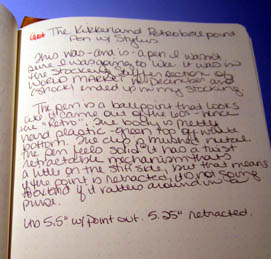 The Kikkerland Retro ballpoint
Pen w/ Stylus
This was - and is - a pen I wasn't
sure I was going to like. It was in
the stocking stuffer section of
WORLD MARKET in December and
(shock) ended up in my stocking.
The pen is a ballpoint that looks
like it came out of the 60s - hence
the "Retro". The body is pretty
hard plastic - green top off white
bottom. The clip is brushed metal.
The pen feels solid - it has a twist
retractable mechanism that's
a little on the stiff side, but that means
if the point is retracted, it's not going
to extend if it rattles around in a
purse.
5.5" w/point out. 5.25" retracted.